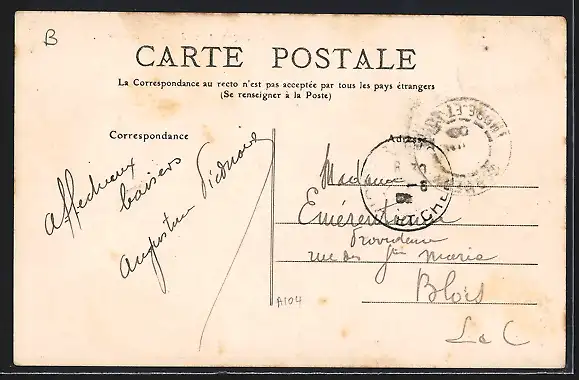 B
CARTE POSTALE
La Correspondance au recto n'est pas acceptée par tous les pays étrangers
(Se renseigner à la Poste)
Correspondance
Adresse
Affectueux
baisers
Augustine
Madame
Providence
rue des Stes Maries
Blois
L & C
A104